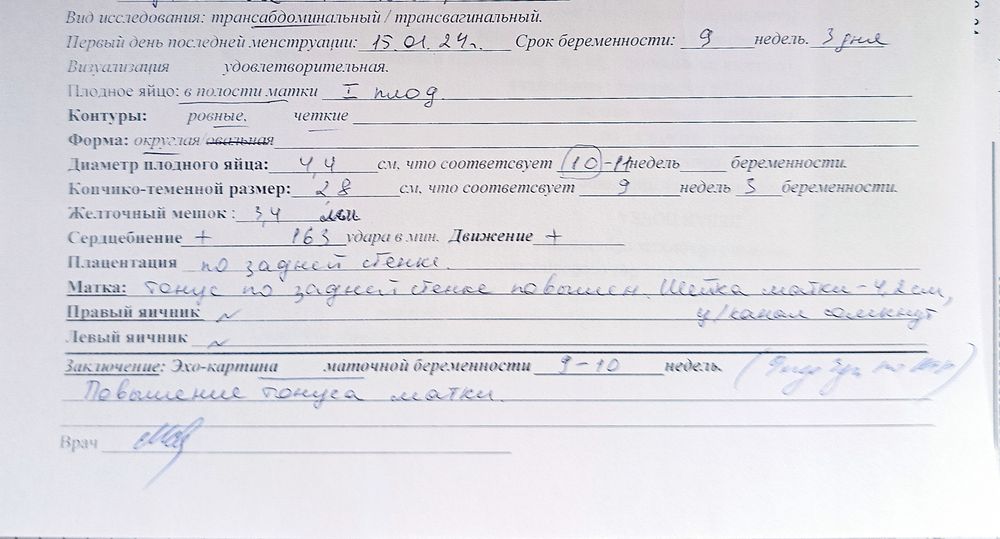 Вид исследования: трансабдоминальный / трансвагинальный.
Первый день последней менструации: 15.01.24г. Срок беременности: 9 недель. 3 дня
Визуализация удовлетворительная.
Плодное яйцо: в полости матки I плод.
Контуры: ровные, четкие
Форма: округлая/овальная
Диаметр плодного яйца: 4,4 см, что соответсвует 10-11 недель беременности.
Копчико-теменной размер: 2,8 см, что соответсвует 9 недель 5 беременности.
Желточный мешок : 3,4 мм
Сердцебиение + 163 удара в мин. Движение +
Плацентация по задней стенке.
Матка: тонус по задней стенке повышен. Шейка матки-4,2см,
ц/канал сомкнут
Правый яичник ~
Левый яичник ~
Заключение: Эхо-картина маточной беременности 9-10 недель.
Повышение тонуса матки.
Врач